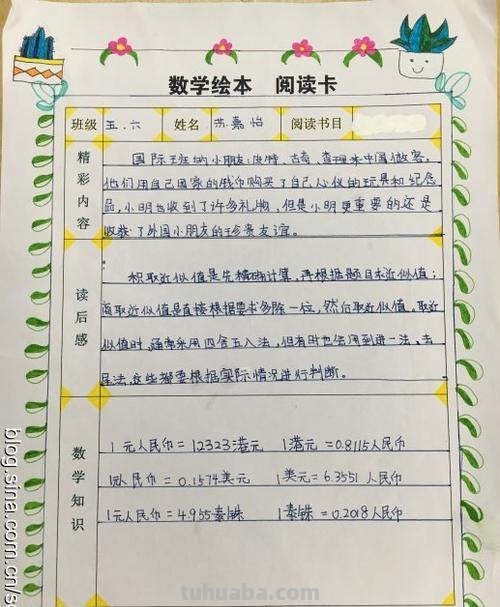 数学绘本 阅读卡
班级 五.六 姓名 苏嘉怡 阅读书目
精彩内容
国际班的小朋友:皮特、古奇、查理来中国做客,
他们用自己国家的钱币购买了自己心仪的玩具和纪念
品,小明也收到了许多礼物,但是小明更重要的还是
收获了外国小朋友的珍贵友谊。
读后感
积取近似值是先精确计算,再根据题目求近似值;
商取近似值是直接根据要求多除一位,然后取近似值。取近
似值时,通常采用四舍五入法,但有时也会用到进一法、去
尾法,这些都要根据实际情况进行判断。
数学知识
1元人民币=1.2323港元 1港元=0.8115人民币
1元人民币=0.1574美元 1美元=6.3551人民币
1元人民币=4.955泰铢 1泰铢=0.2018人民币
blog.sina.com.cn/s
tuhuaba.com